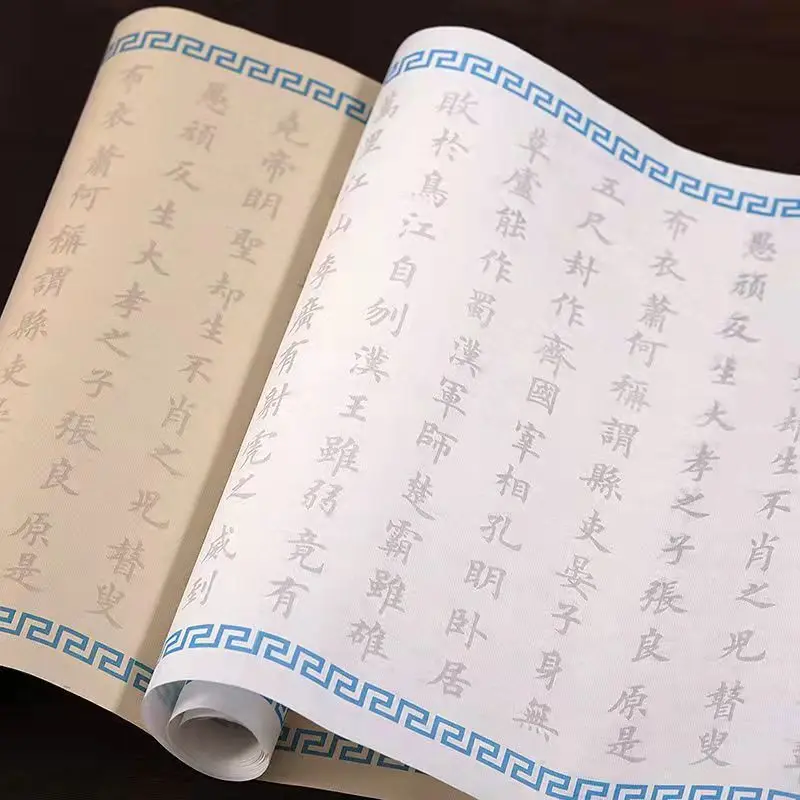 却生不肖之兒瞽叟
愚頑反生大孝之子張良原是
布衣蕭何稱謂縣吏晏子身無
五尺封作齊國宰相孔明卧居
草廬能作蜀漢軍師楚霸雖雄
敗於烏江自刎漢王雖弱竟有
萬里江山李廣有射虎之威到
堯帝明聖却生不肖之兒瞽叟
愚頑反生大孝之子張良原是
布衣蕭何稱謂縣吏